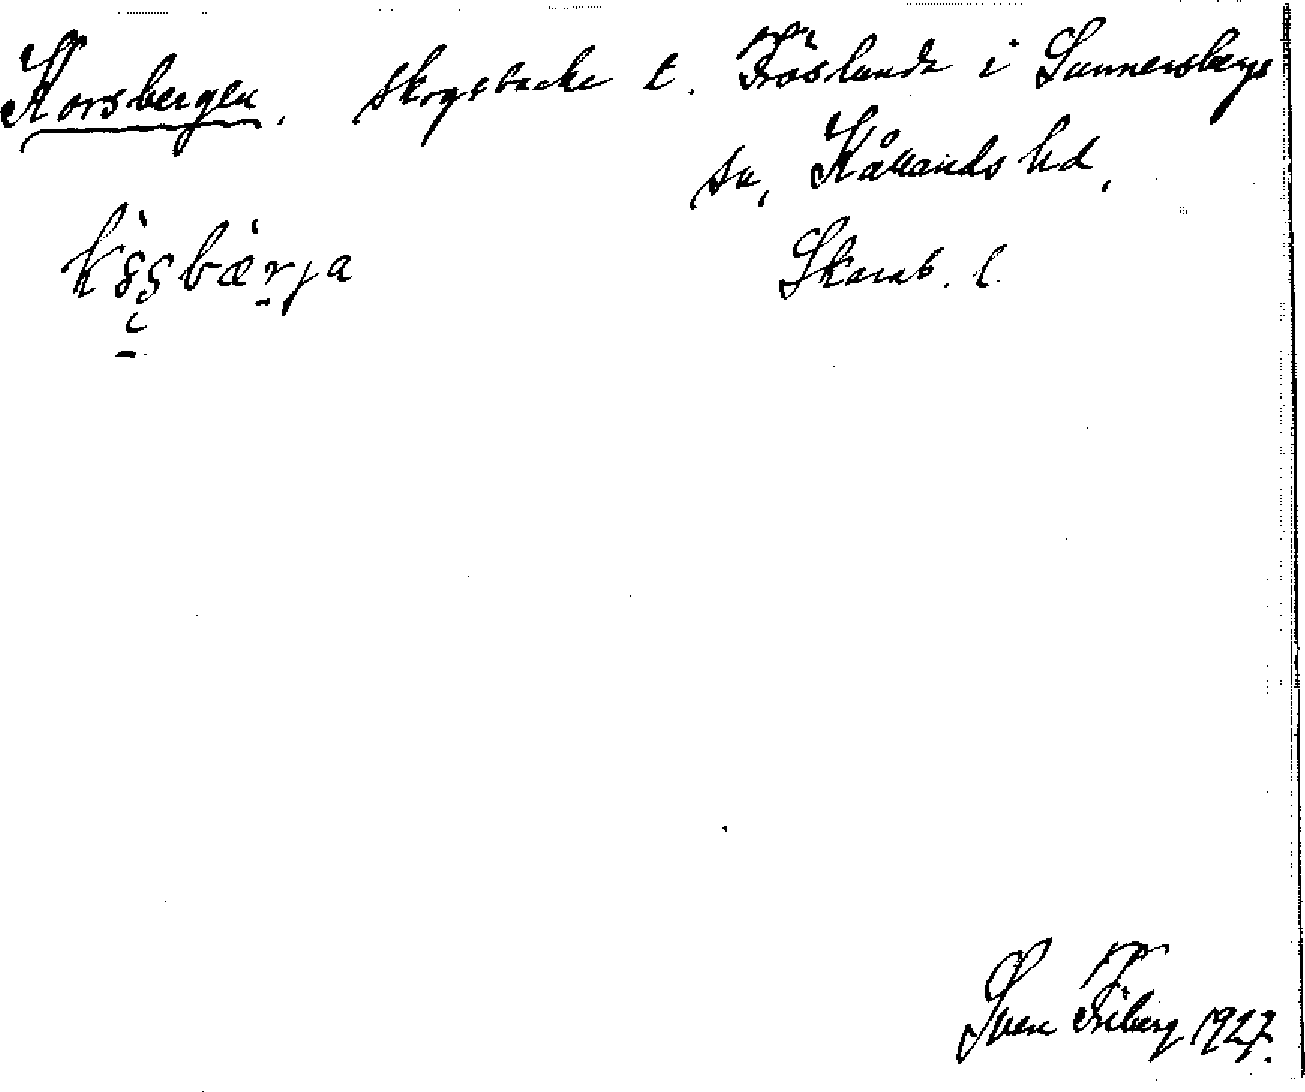 Korsbergen. skogsbacke t. Fröslunda i Sunnersbergs
sn, Kållands hd,
Skarab. l.
Sven Friberg 1927.